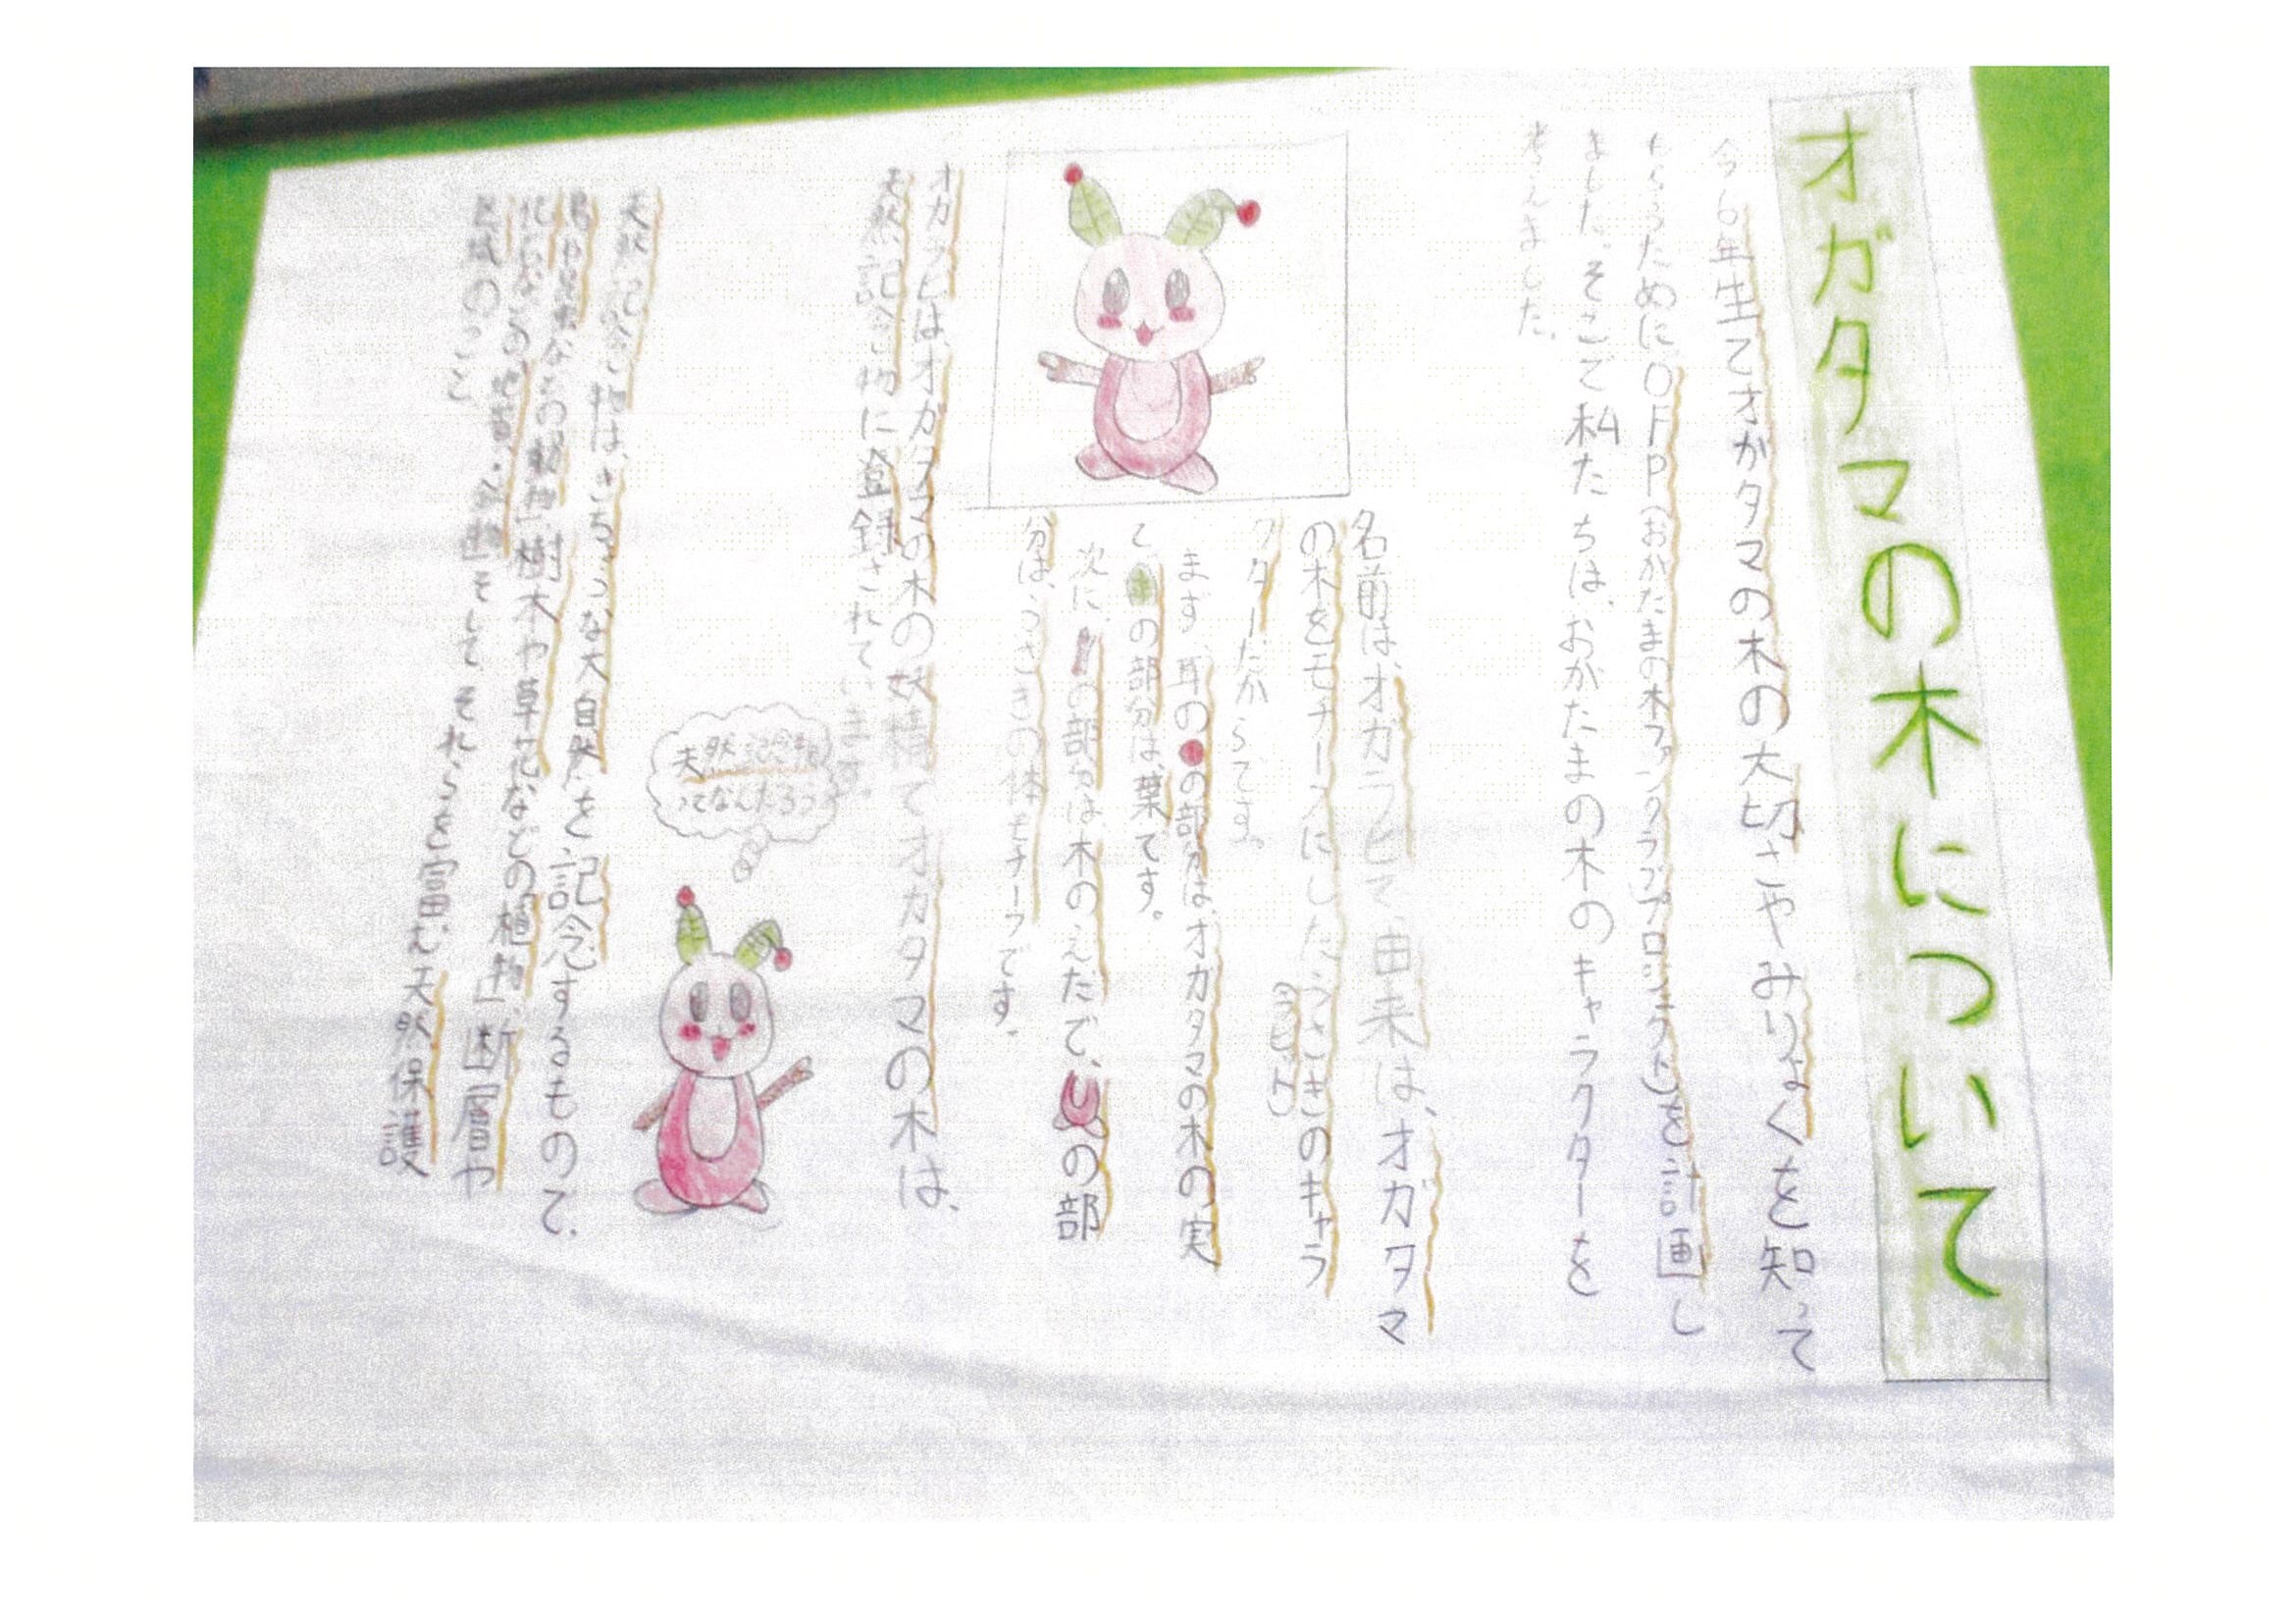 オガタマの木について
今6年生でオガタマの木の大切さやみりょくを知って
もらうために、OFP(おがたまの木ファンクラブプロジェクト)を計画し
ました。そこで私たちは、おがたまの木のキャラクターを
考えました。
名前は、オガラビで、由来は、オガタマ
の木をモチーフにしたうさぎのキャラ
(ラビット)
クターだからです。
まず、耳の の部分は、オガタマの木の実
で、 の部分は、葉です。
次に、 の部分は木のえだで、 の部
分は、うさぎの体モチーフです。
オガラビは、オガタマの木の妖精でオガタマの木は、
天然記念物に登録されています。
天然記念物
ってなんだろう
天然記念物は、きちょうな大自然を記念するもので、
鳥や昆虫などの「動物」、樹木や草花などの「植物」、断層や
化石などの「地質・鉱物」そして、それらを富む天然保護
区域のこと。